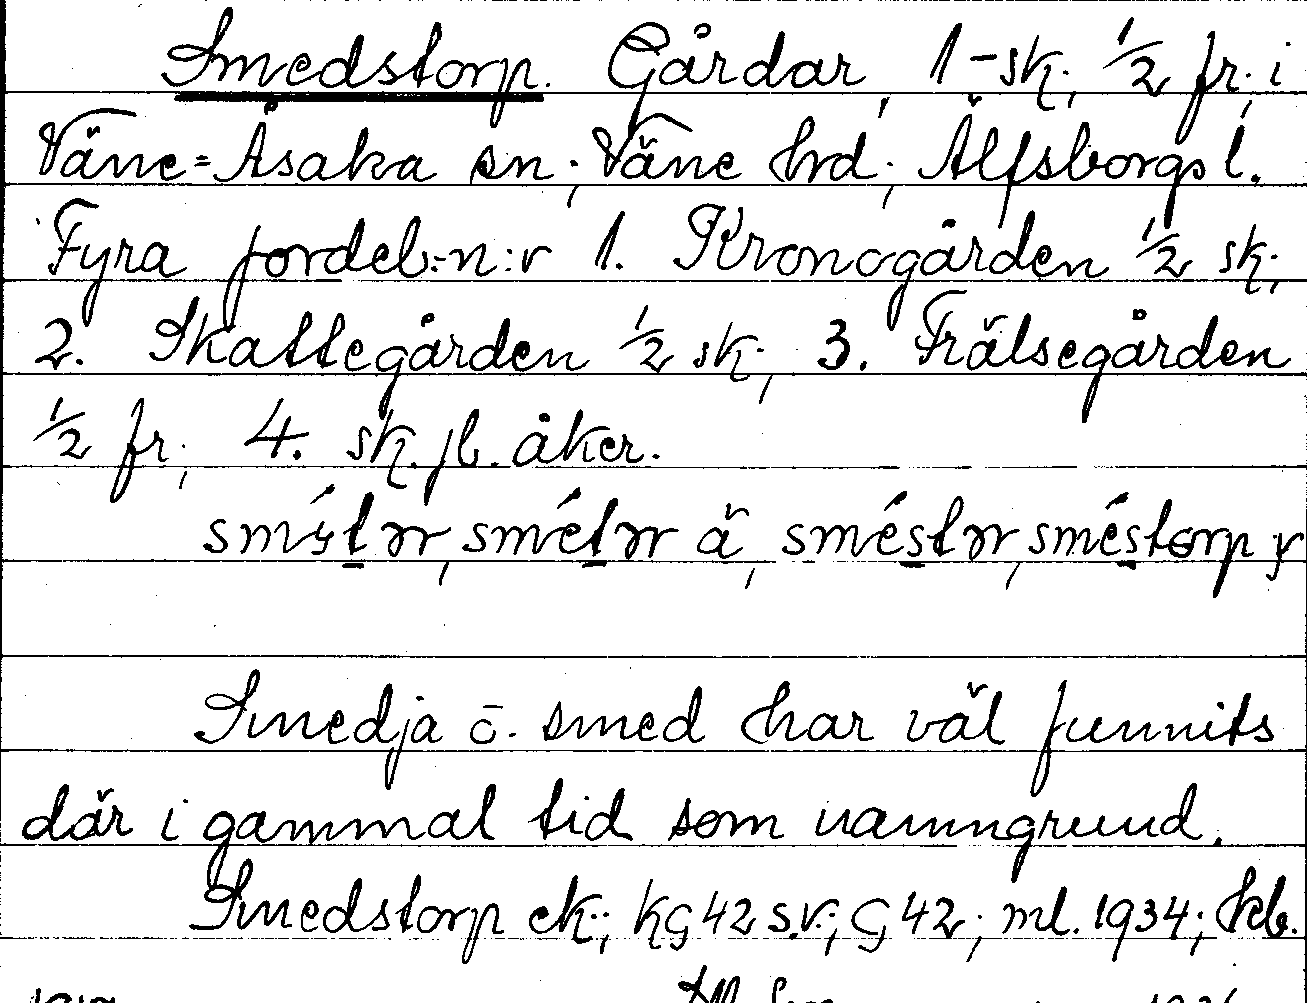 Smedstorp. Gårdar, 1 sk., ½ fr. i
Väne=Åsaka sn, Väne hrd, Älfsborgs l.
Fyra jordeb.-n:r 1. Kronogården ½ sk,
2. Skattegården ½ sk, 3. Frälsegården
½ fr, 4. sk. jb. åker.
ä, sméstorp y
Smedja o. smed har väl funnits
där i gammal tid som namngrund.
Smedstorp ek; KG 42 s.v.; G 42; ml. 1934; kb.